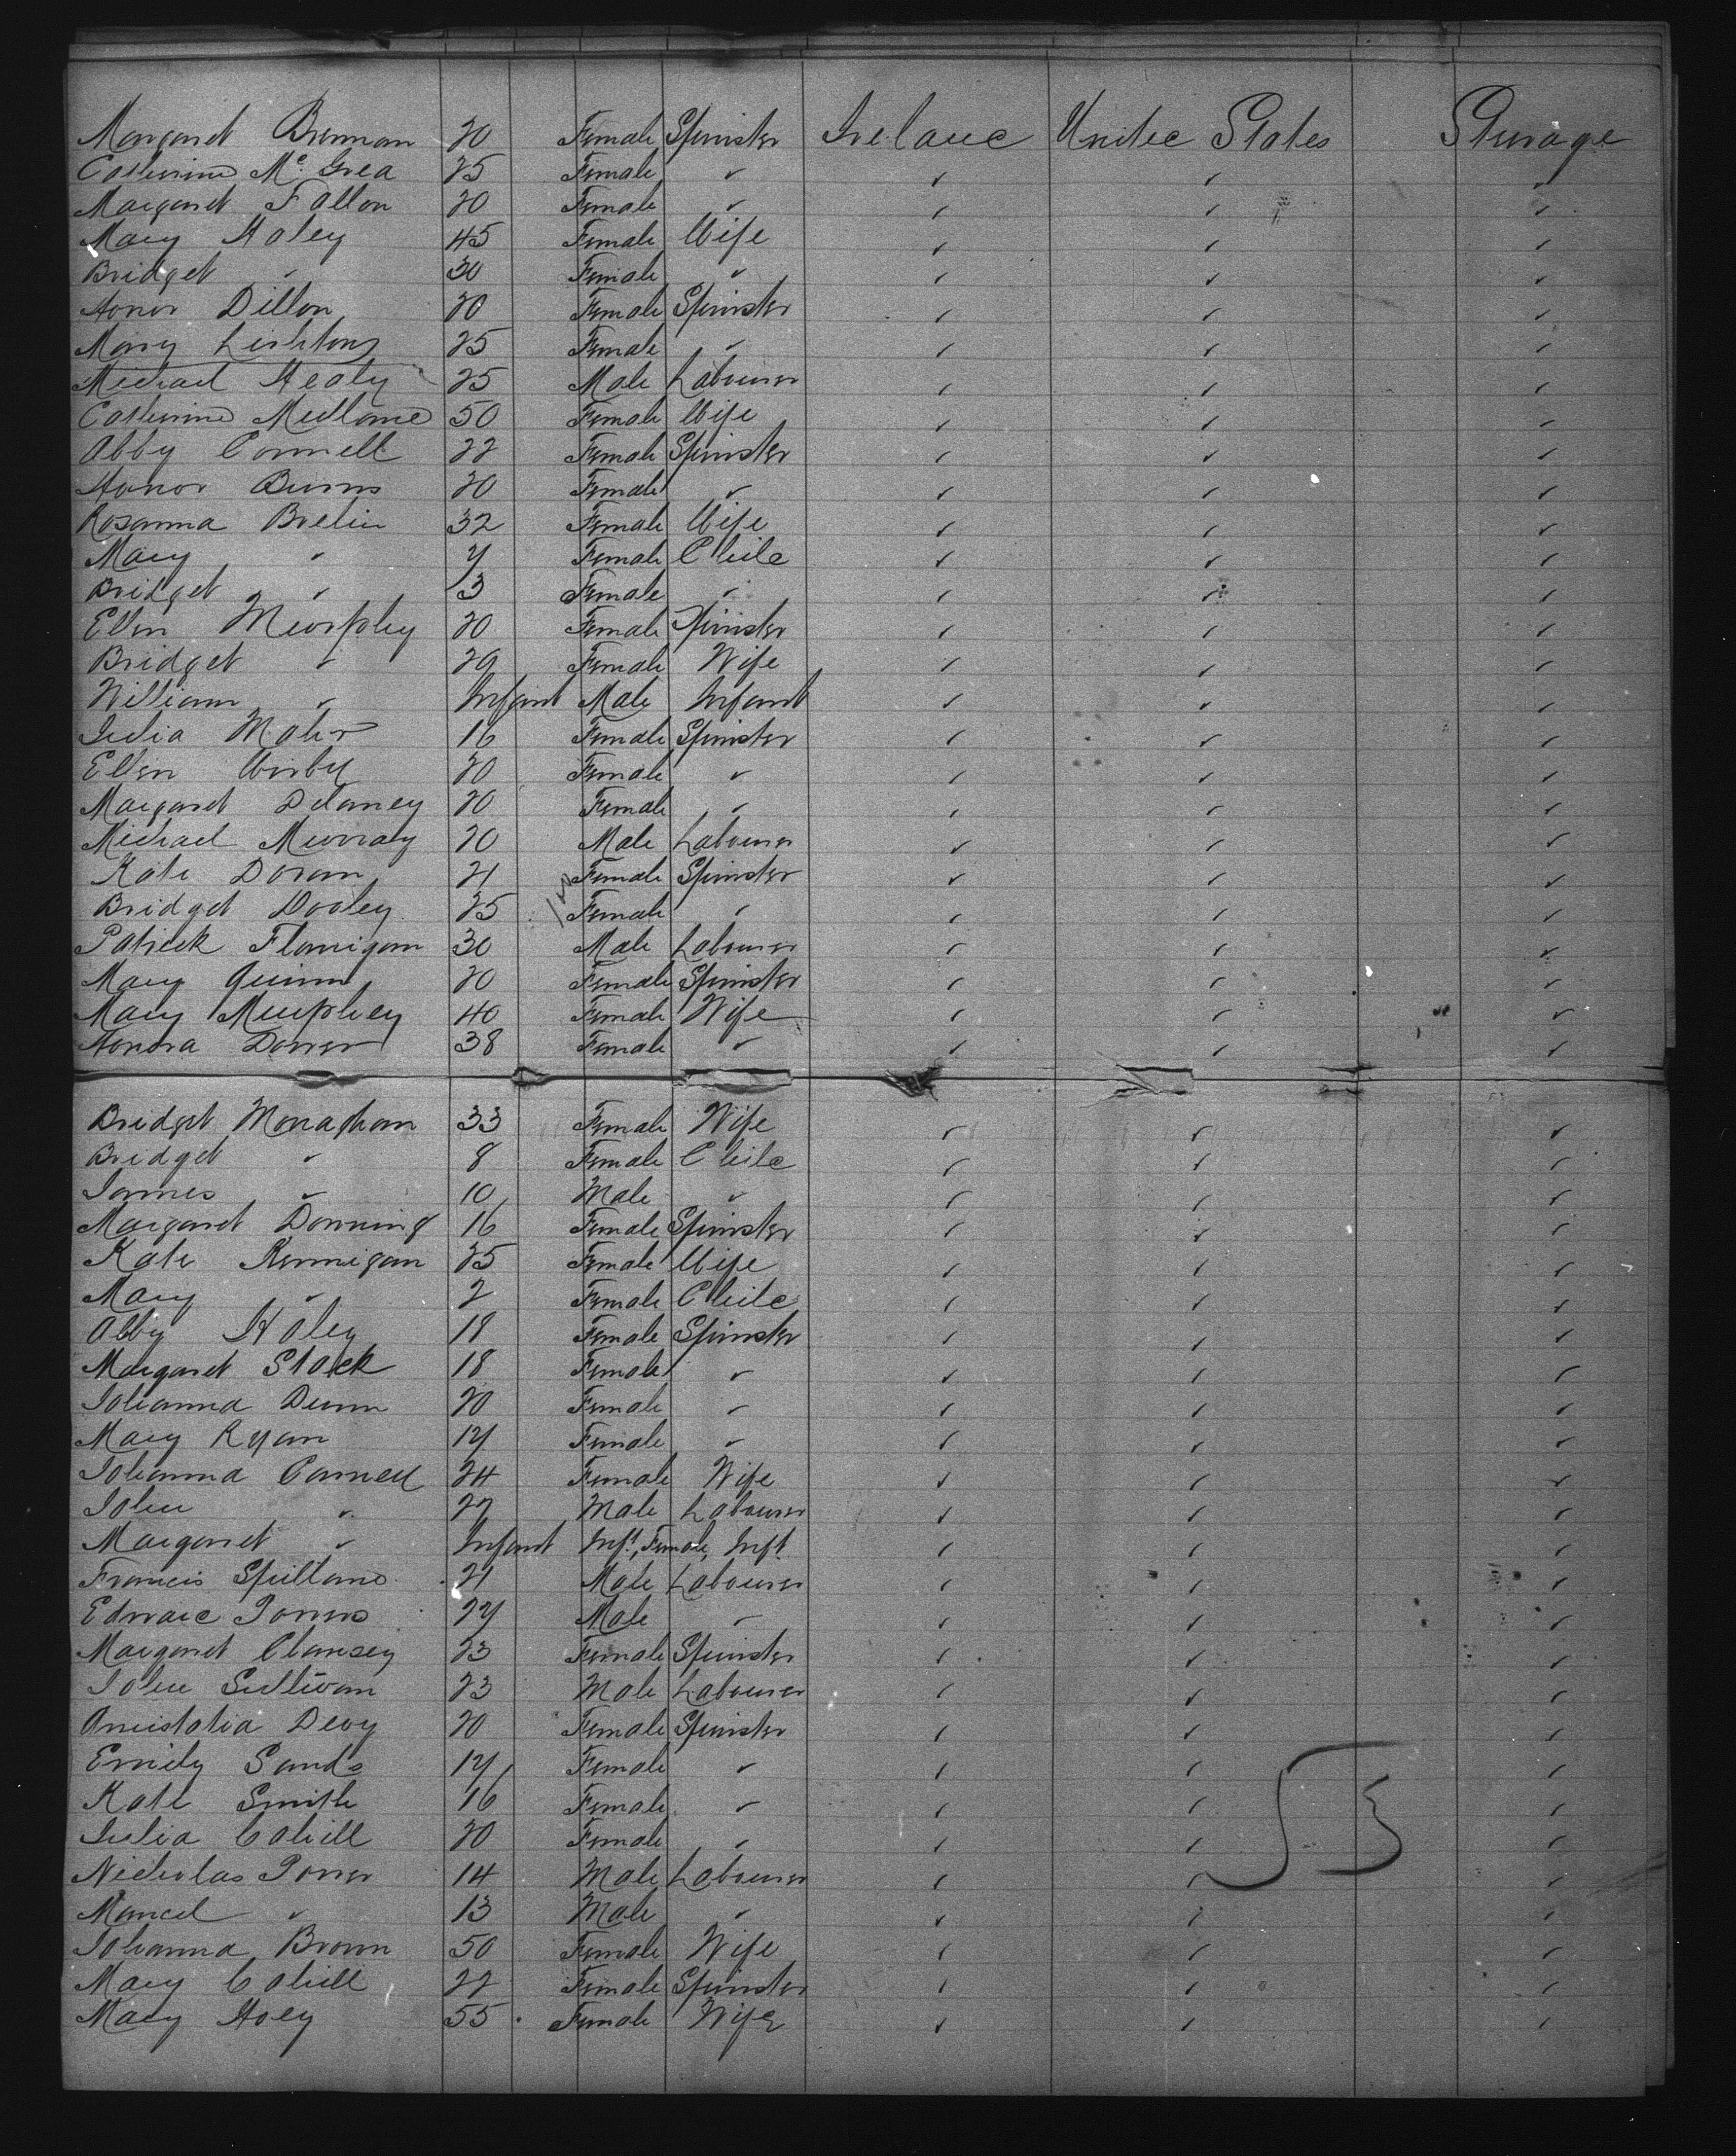 Margaret Brennan 20 Female Spinster Ireland United States Steerage
Catherine Mc Grea 25 Female " " " "
Margaret Fallon 20 Female " " " "
Mary Haley 45 Female Wife " " "
Bridget " 30 Female " " " "
Honor Dillon 20 Female Spinster " " "
Mary 25 Female " " " "
Michael Healy 25 Male Labourer " " "
Catherine 50 Female Wife " " "
Abby Connell 22 Female Spinster " " "
Honor Burns 20 Female " " " "
Rosanna Brelin 32 Female Wife " " "
Mary " 7 Female Child " " "
Bridget " 3 Female " " " "
Ellen Murphey 20 Female Spinster " " "
Bridget " 29 Female Wife " " "
William " Infant Male Infant " " "
Julia Maher 16 Female Spinster " " "
Ellen Kirby 20 Female " " " "
Margaret Delaney 20 Female " " " "
Michael Murray 20 Male Labourer " " "
Kate Doran 21 Female Spinster " " "
Bridget Dooley 25 Female " " " "
Patrick Flanigan 30 Male Labourer " " "
Mary Quinn 20 Female Spinster " " "
Mary Murphey 40 Female Wife " " "
Honora Dorrer 38 Female " " " "
Bridget Monaghan 33 Female Wife " " "
Bridget " 8 Female Child " " "
James " 10 Male " " " "
Margaret Downing 16 Female Spinster " " "
Kate Kernigan 25 Female Wife " " "
Mary " 2 Female Child " " "
Abby Haley 18 Female Spinster " " "
Margaret Stack 18 Female " " " "
Johanna Dunn 20 Female " " " "
Mary Ryan 17 Female " " " "
Johanna Connell 24 Female Wife " " "
John " 27 Male Labourer " " "
Margaret " Infant Inft, Female, Inft. " " "
Francis Spillane 21 Male Labourer " " "
Edward Powers 27 Male " " " "
Margaret Clansey 23 Female Spinster " " "
John Sullivan 23 Male Labourer " " "
Anistatia Devy 20 Female Spinster " " "
Emily Sands 17 Female " " " "
Kate Smith 16 Female " " " "
Julia Cahill 20 Female " " " "
Nicholas Power 14 Male Labourer " " "
" 13 Male " " " "
Johanna Brown 50 Female Wife " " "
Mary Cahill 22 Female Spinster " " "
Mary Hoey 55 Female Wife " " "
53